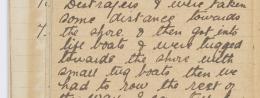 1. Destroyers & were taken
some distance towards
7. the shore & then got into
life boats & were tugged
towards the shore with
small tug boats then we
had to row the rest of
the way